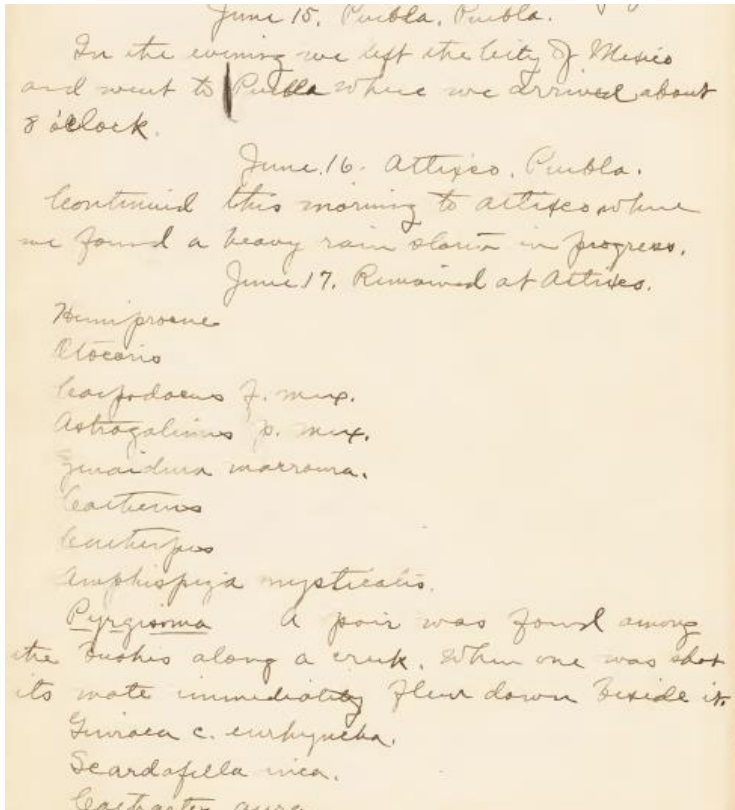 June 15. Puebla, Puebla.
In the evening we left the City of Mexico
and went to Puebla where we arrived about
8 o'clock.
June 16. Atlixco, Puebla.
Continued this morning to Atlixco where
we found a heavy rain storm in progress.
June 17. Remained at Atlixco.
Hemiprocne
Otocoris
Carpodacus f. mex.
Astragalinus p. mex.
Zenaidura marroura.
Cactherpes
Amphispiza mysticalis.
Pyrgisoma A pair was found among
the bushes along a creek. When one was shot
its mate immediately flew down beside it.
Guiraca c. eurhyncha.
Scardafella inca.
aura